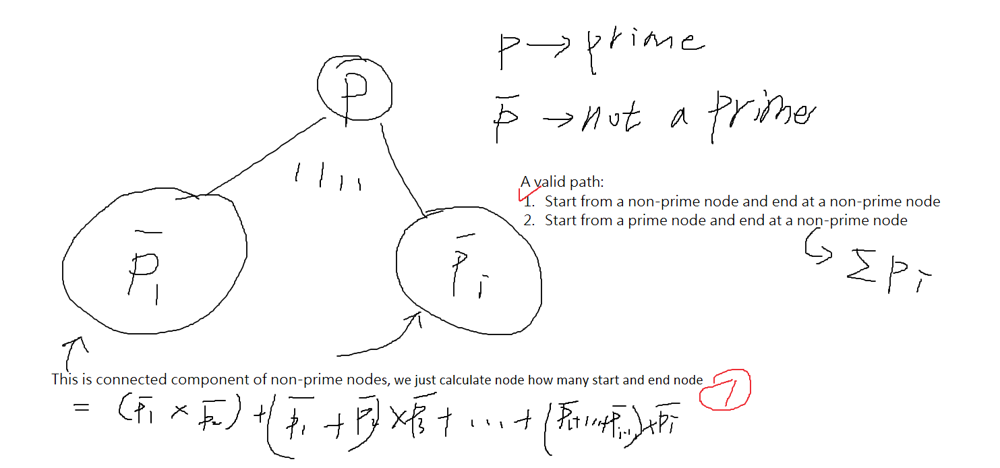 p → prime
p̅ → not a prime
P
A valid path:
1. Start from a non-prime node and end at a non-prime node
2. Start from a prime node and end at a non-prime node
∑ P i
p̅ 1
p̅ i
This is connected component of non-prime nodes, we just calculate node how many start and end node 1
= (p̅1 × p̅2) + (p̅1 + p̅2) × p̅3 + ... + (p̅1 + ... + p̅i-1) × p̅i